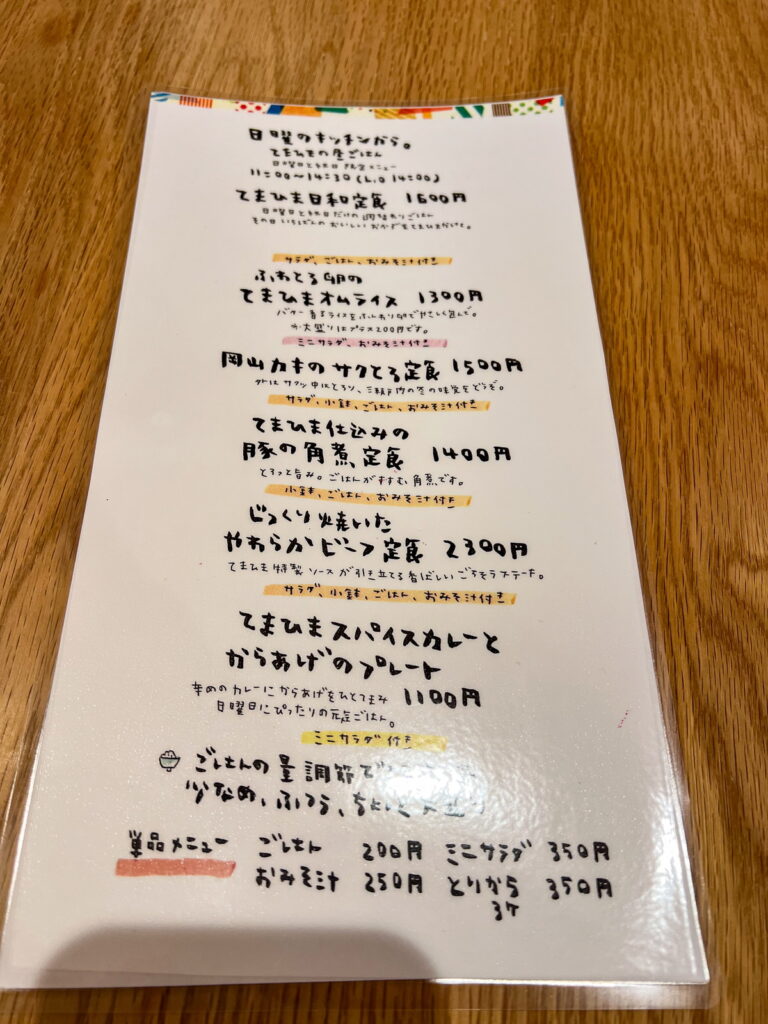 日曜のキッチンから。
てまひまの昼ごはん
日曜日と祝日限定メニュー
11:00～14:30(L.O 14:00)
てまひま日和定食 1600円
日曜日と祝日だけの ごはん
その日いちばんのおいしいおかずをてまひまかけて。
サラダ、ごはん、おみそ汁付き
ふわとろ卵の
てまひまオムライス 1300円
バター香るライスをふんわり卵でやさしく包んで。
大盛りはプラス200円です。
ミニサラダ、おみそ汁付き
岡山カキのサクとろ定食 1500円
外はサクッ中はとろり、瀬戸内の冬の味覚をどうぞ。
サラダ、小鉢、ごはん、おみそ汁付き
てまひま仕込みの
豚の角煮定食 1400円
とろっと旨み。ごはんがすすむ角煮です。
小鉢、ごはん、おみそ汁付き
じっくり焼いた
やわらかビーフ定食 2300円
てまひま特製ソースが引き立てる香ばしいごちそうステーキ。
サラダ、小鉢、ごはん、おみそ汁付き
てまひまスパイスカレーと
からあげのプレート
辛めのカレーにからあげをひとてまみ 1100円
日曜日にぴったりの元気ごはん。
ミニサラダ付き
ごはんの量調節で
少なめ、ふつう、
単品メニュー ごはん 200円 ミニサラダ 350円
おみそ汁 250円 とりから 350円
3ケ